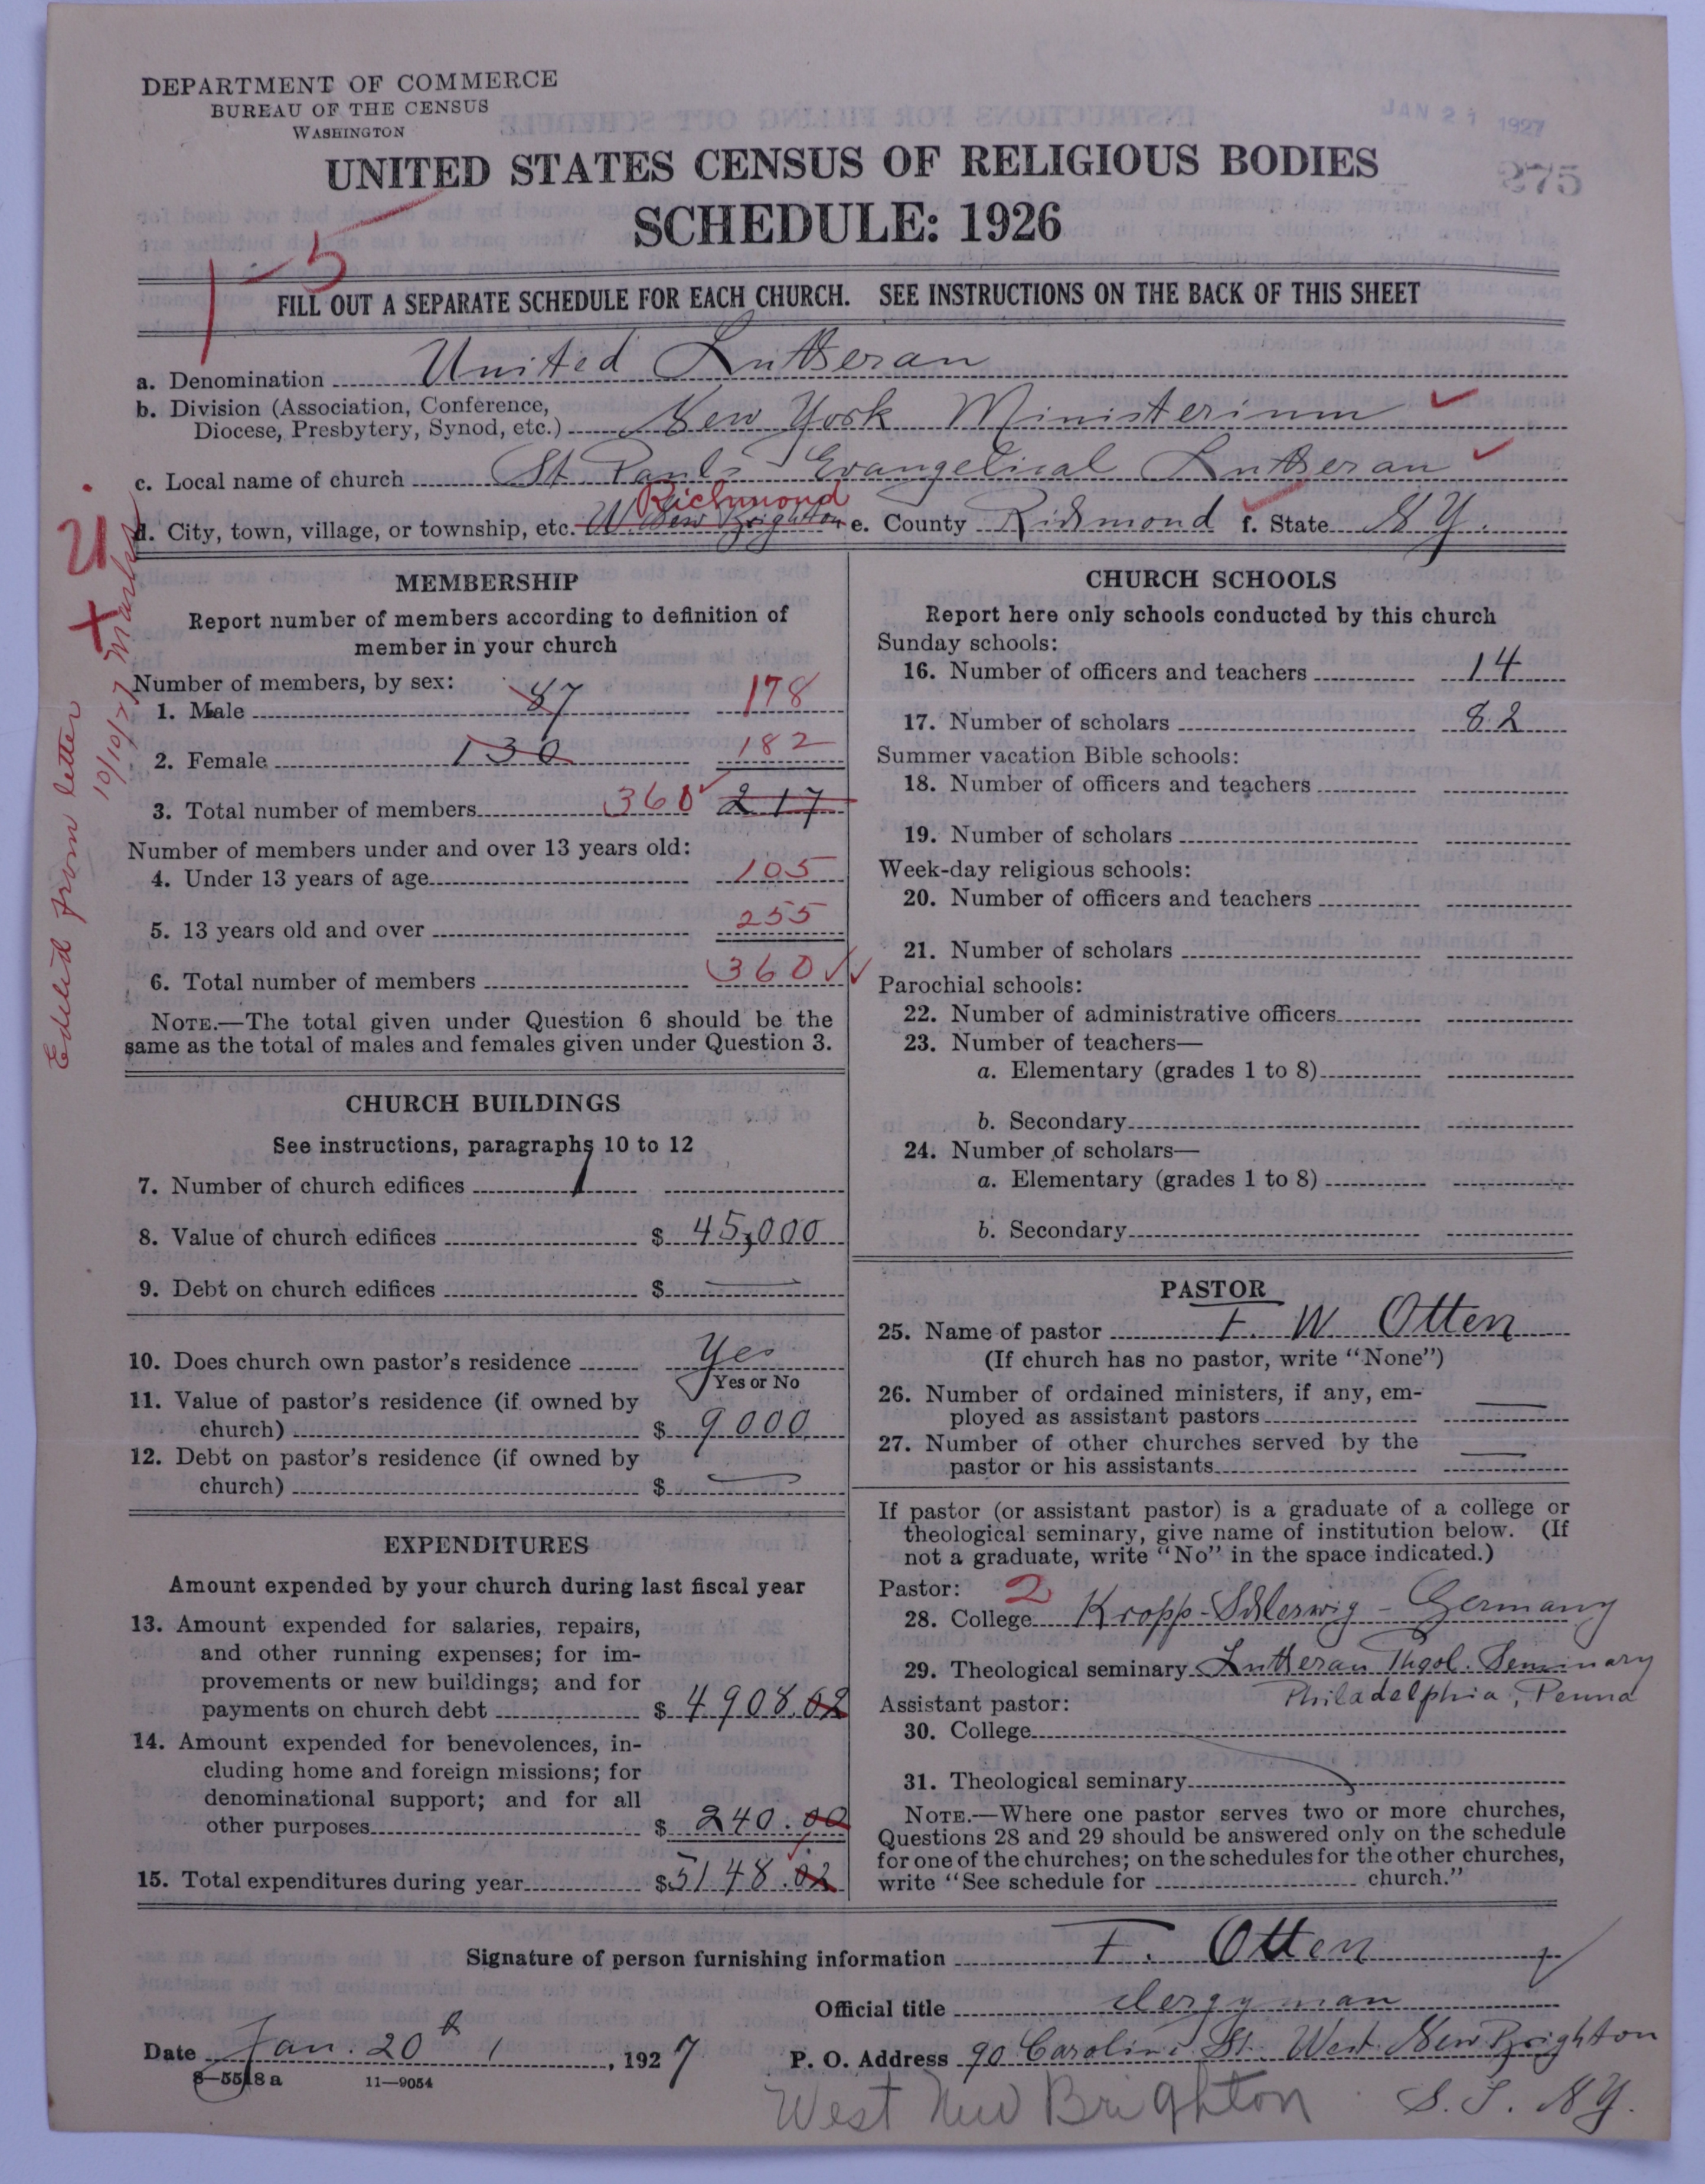 DEPARTMENT OF COMMERCE
BUREAU OF THE CENSUS
WASHINGTON
JAN 21 1927
275
UNITED STATES CENSUS OF RELIGIOUS BODIES
SCHEDULE: 1926
1-5
FILL OUT A SEPARATE SCHEDULE FOR EACH CHURCH. SEE INSTRUCTIONS ON THE BACK OF THIS SHEET
a. Denomination United Lutheran
b. Division (Association, Conference,
Diocese, Presbytery, Synod, etc.) New York Ministerium
c. Local name of church St Pauls Evangelical Lutheran
Richmond
d. City, town, village, or township, etc. W New Brighton e. County Richmond f. State N Y.
Edited from letter
10/10/27
MEMBERSHIP
Report number of members according to definition of
member in your church
Number of members, by sex:
1. Male 87 178
2. Female 130 182
3. Total number of members 360 217
Number of members under and over 13 years old:
4. Under 13 years of age 105
5. 13 years old and over 255
6. Total number of members 360
NOTE.—The total given under Question 6 should be the
same as the total of males and females given under Question 3.
CHURCH BUILDINGS
See instructions, paragraphs 10 to 12
7. Number of church edifices 1
8. Value of church edifices $ 45,000
9. Debt on church edifices $ —
10. Does church own pastor's residence Yes
Yes or No
11. Value of pastor's residence (if owned by
church) $ 9000
12. Debt on pastor's residence (if owned by
church) $ —
EXPENDITURES
Amount expended by your church during last fiscal year
13. Amount expended for salaries, repairs,
and other running expenses; for im-
provements or new buildings; and for
payments on church debt $ 4908.02
14. Amount expended for benevolences, in-
cluding home and foreign missions; for
denominational support; and for all
other purposes $ 240.00
15. Total expenditures during year $ 5148.02
CHURCH SCHOOLS
Report here only schools conducted by this church
Sunday schools:
16. Number of officers and teachers 14
17. Number of scholars 82
Summer vacation Bible schools:
18. Number of officers and teachers
19. Number of scholars
Week-day religious schools:
20. Number of officers and teachers
21. Number of scholars
Parochial schools:
22. Number of administrative officers
23. Number of teachers—
a. Elementary (grades 1 to 8)
b. Secondary
24. Number of scholars—
a. Elementary (grades 1 to 8)
b. Secondary
PASTOR
25. Name of pastor F. W. Otten
(If church has no pastor, write "None")
26. Number of ordained ministers, if any, em-
ployed as assistant pastors —
27. Number of other churches served by the
pastor or his assistants —
If pastor (or assistant pastor) is a graduate of a college or
theological seminary, give name of institution below. (If
not a graduate, write "No" in the space indicated.)
Pastor: 2
28. College Kropp-Schleswig - Germany
29. Theological seminary Lutheran Theol. Seminary
Philadelphia, Penna
Assistant pastor:
30. College
31. Theological seminary
NOTE.—Where one pastor serves two or more churches,
Questions 28 and 29 should be answered only on the schedule
for one of the churches; on the schedules for the other churches,
write "See schedule for church."
Signature of person furnishing information F. Otten
Official title clergyman
Date Jan. 20th, 1927 P. O. Address 90 Caroline St. West New Brighton
S. I. NY.
8—5518 a 11—9054
West New Brighton